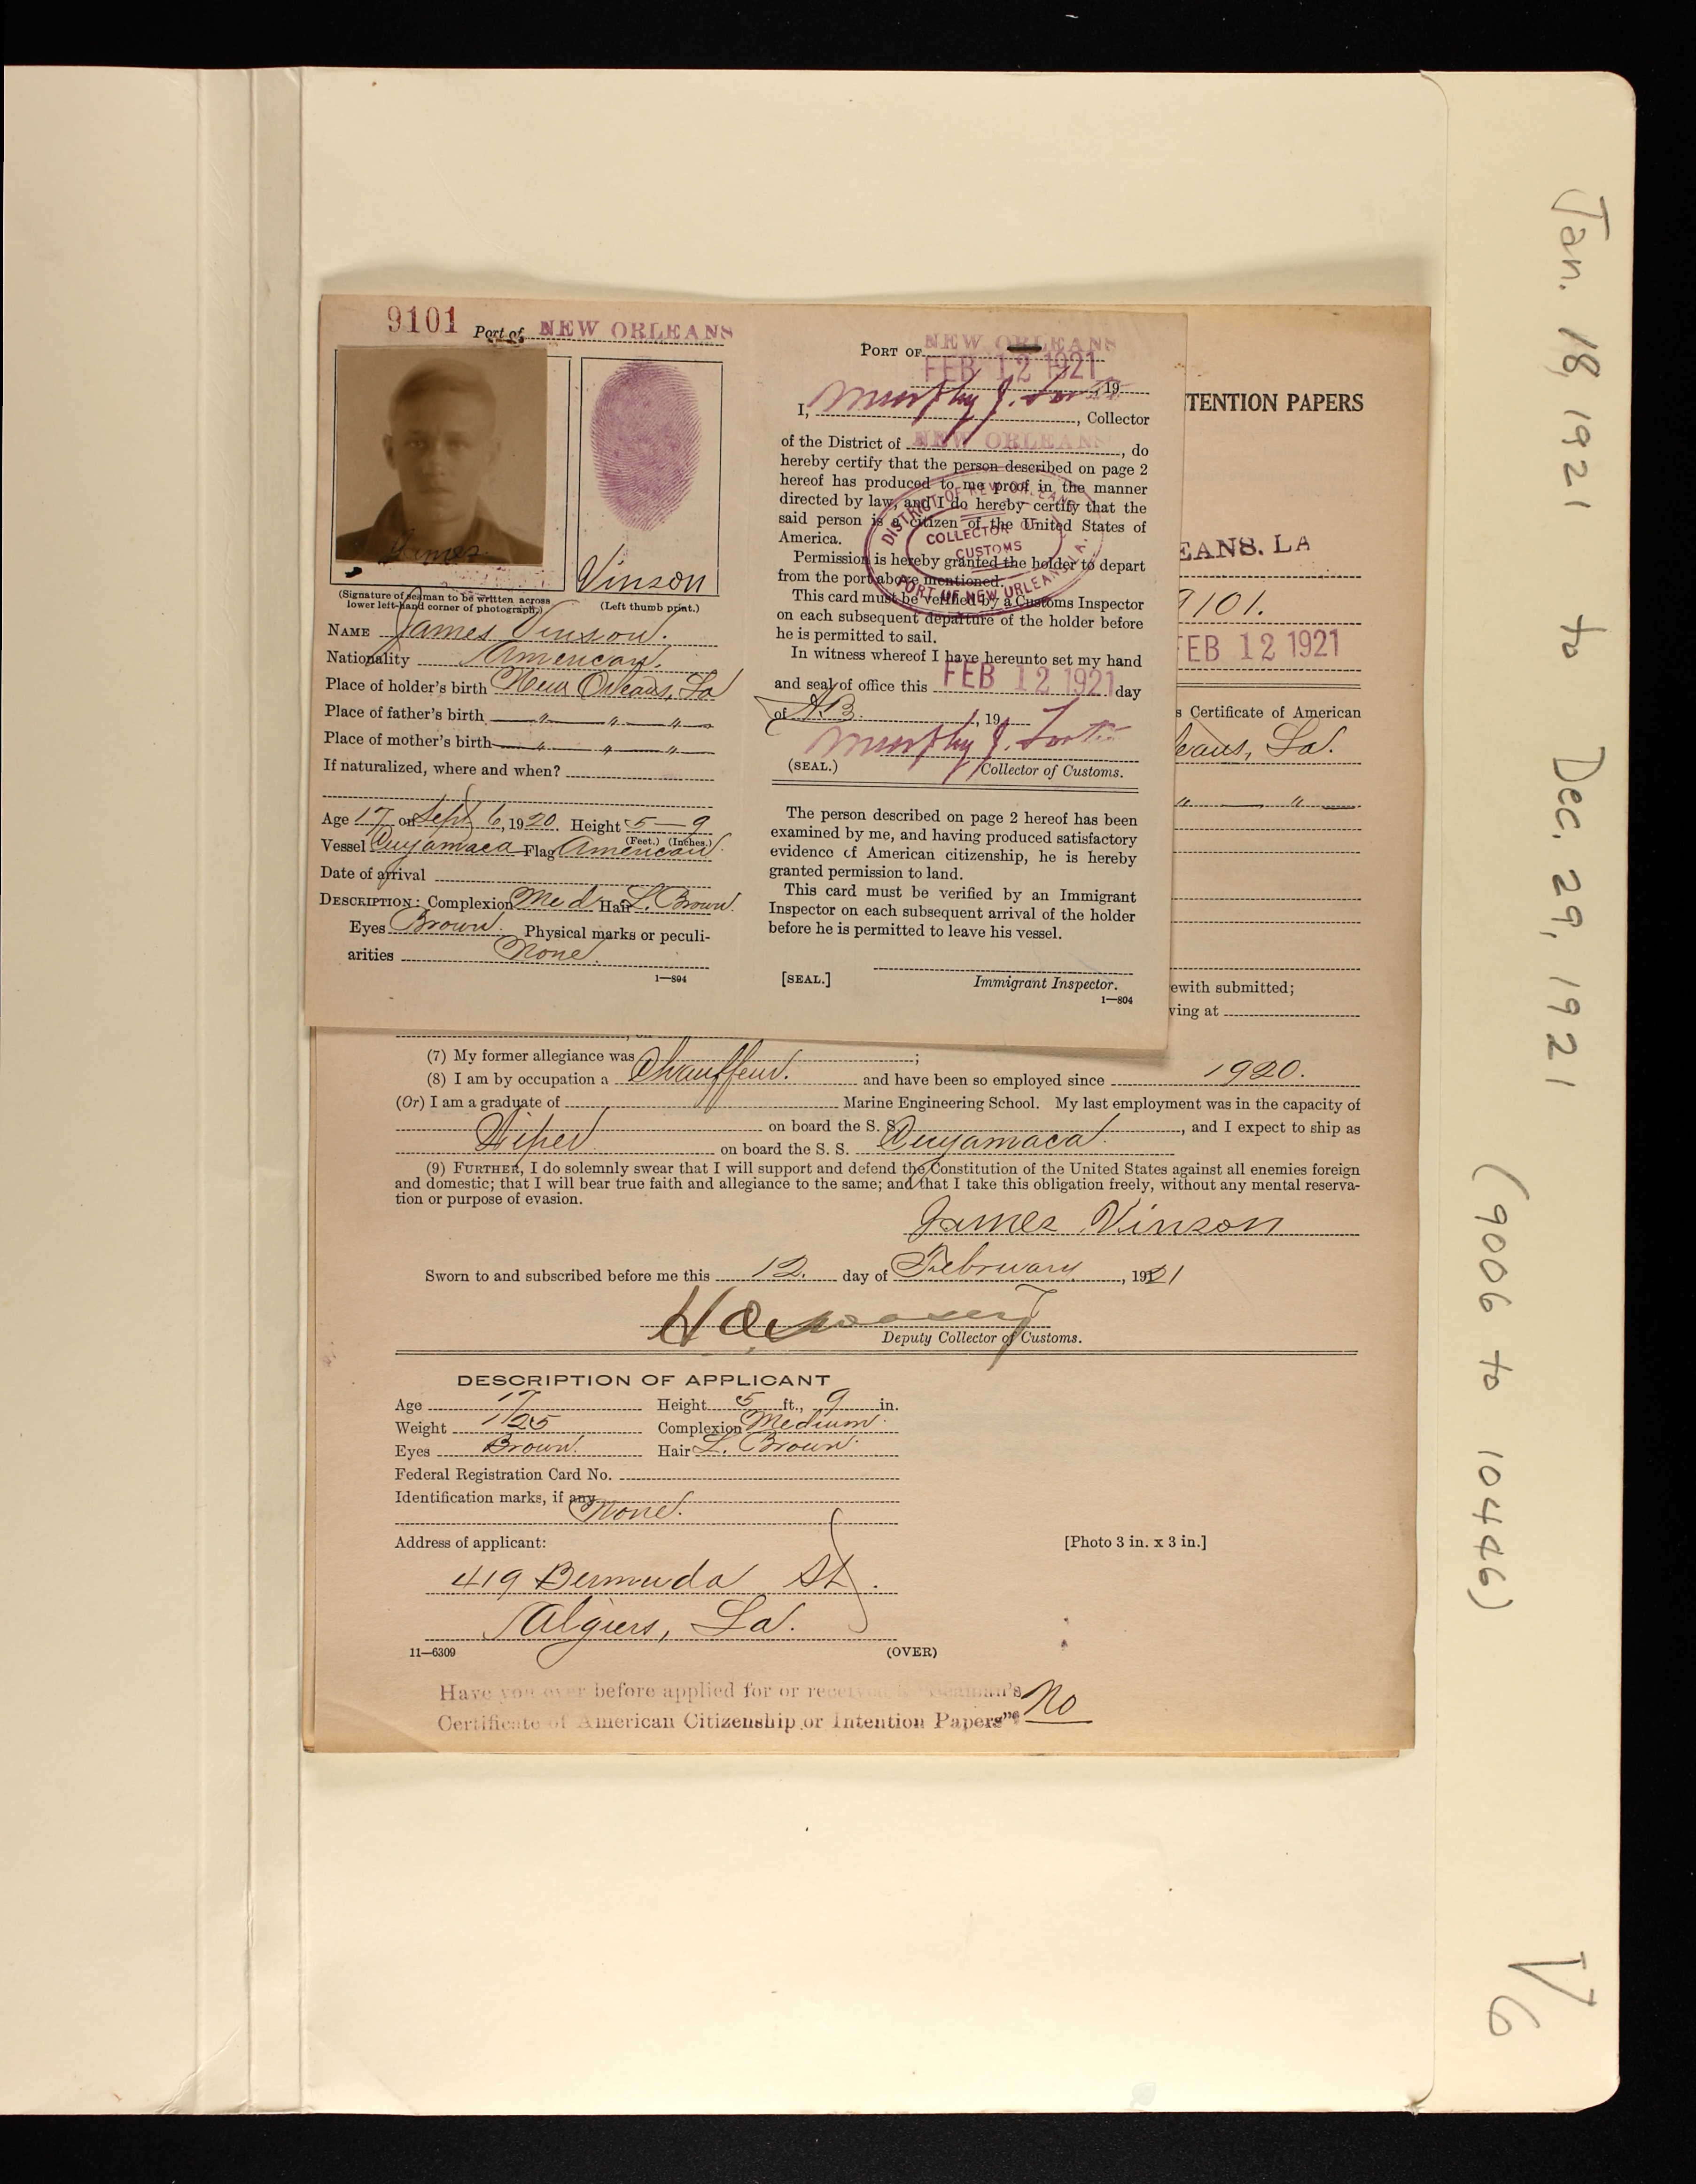 Jan. 18, 1921 to Dec. 29, 1921
(9006 to 10446)
V6
9101 Port of NEW ORLEANS
James
Vinson
(Signature of seaman to be written across
lower left-hand corner of photograph.)
(Left thumb print.)
NAME James Vinson.
Nationality American.
Place of holder's birth New Orleans, La
Place of father's birth " " "
Place of mother's birth " " "
If naturalized, where and when?
Age 17 on Sept 6, 1920. Height 5-9
(Feet.) (Inches.)
Vessel Cuyamaca Flag American.
Date of arrival
DESCRIPTION: Complexion Med Hair L. Brown.
Eyes Brown. Physical marks or peculi-
arities None.
1—804
PORT OF NEW ORLEANS
FEB 12 1921
19
I, Murphy J. , Collector
of the District of NEW ORLEANS, do
hereby certify that the person described on page 2
hereof has produced to me proof in the manner
directed by law, and I do hereby certify that the
said person is a citizen of the United States of
America.
Permission is hereby granted the holder to depart
from the port above mentioned.
This card must be verified by a Customs Inspector
on each subsequent departure of the holder before
he is permitted to sail.
In witness whereof I have hereunto set my hand
and seal of office this FEB 12 1921 day
of , 19
Murphy J.
(SEAL.) Collector of Customs.
DISTRICT OF NEW ORLEANS
COLLECTOR OF
CUSTOMS
PORT OF NEW ORLEANS, LA.
The person described on page 2 hereof has been
examined by me, and having produced satisfactory
evidence of American citizenship, he is hereby
granted permission to land.
This card must be verified by an Immigrant
Inspector on each subsequent arrival of the holder
before he is permitted to leave his vessel.
[SEAL.] Immigrant Inspector.
1—804
TENTION PAPERS
EANS. LA
9101.
FEB 12 1921
s Certificate of American
leans, La.
" "
ewith submitted;
ving at
(7) My former allegiance was ;
(8) I am by occupation a Chauffeur. and have been so employed since 1920.
(Or) I am a graduate of Marine Engineering School. My last employment was in the capacity of
on board the S. S. , and I expect to ship as
Wiper on board the S. S. Cuyamaca.
(9) FURTHER, I do solemnly swear that I will support and defend the Constitution of the United States against all enemies foreign
and domestic; that I will bear true faith and allegiance to the same; and that I take this obligation freely, without any mental reserva-
tion or purpose of evasion.
James Vinson
Sworn to and subscribed before me this 12. day of February, 1921
Deputy Collector of Customs.
DESCRIPTION OF APPLICANT
Age 17 Height 5 ft., 9 in.
Weight 125 Complexion Medium.
Eyes Brown. Hair L. Brown.
Federal Registration Card No.
Identification marks, if any
None.
Address of applicant:
[Photo 3 in. x 3 in.]
419 Bermuda St.
Algiers, La.
11—6309 (OVER)
Have you ever before applied for or received a "Seaman's
Certificate of American Citizenship or Intention Papers" No